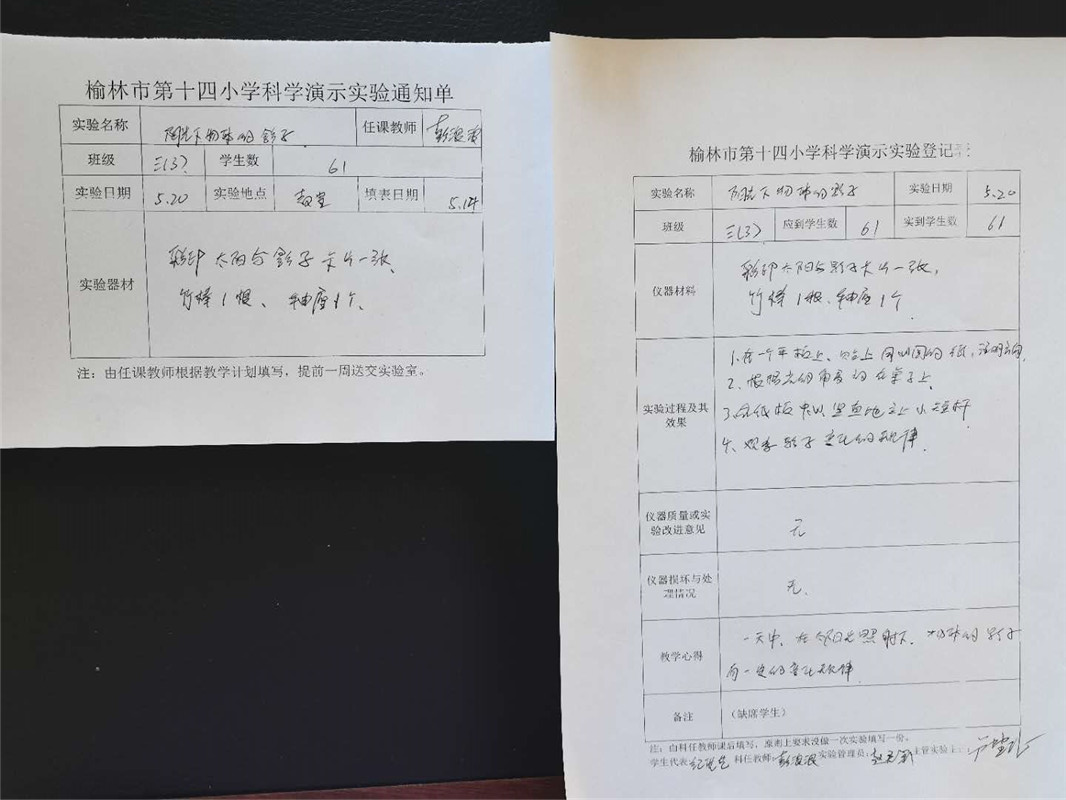 榆林市第十四小学科学演示实验通知单
实验名称 阳光下物体的影子 任课教师
班级 三(3) 学生数 61
实验日期 5.20 实验地点 教室 填表日期 5.14
实验器材 彩印太阳与影子卡片一张、
竹棒1根、轴座1个
注：由任课教师根据教学计划填写，提前一周送交实验室。
榆林市第十四小学科学演示实验登记表
实验名称 阳光下物体的影子 实验日期 5.20
班级 三(3) 应到学生数 61 实到学生数 61
仪器材料 彩印太阳与影子卡片一张，
竹棒1根、轴座1个
实验过程及其效果 1.在一个平板上、
2、根据 的 在桌子上
3、 板中心竖直地立上小短杆
4、观察影子变化的规律.
仪器质量或实验改进意见 无
仪器损坏与处理情况 无、
教学心得 一天中，在 阳光照射下、物体的影子
有一定的变化规律
备注 （缺席学生）
注：由科任教师课后填写，原则上要求没做一次实验填写一份。
学生代表 科任教师: 实验管理员: 主管实验主: